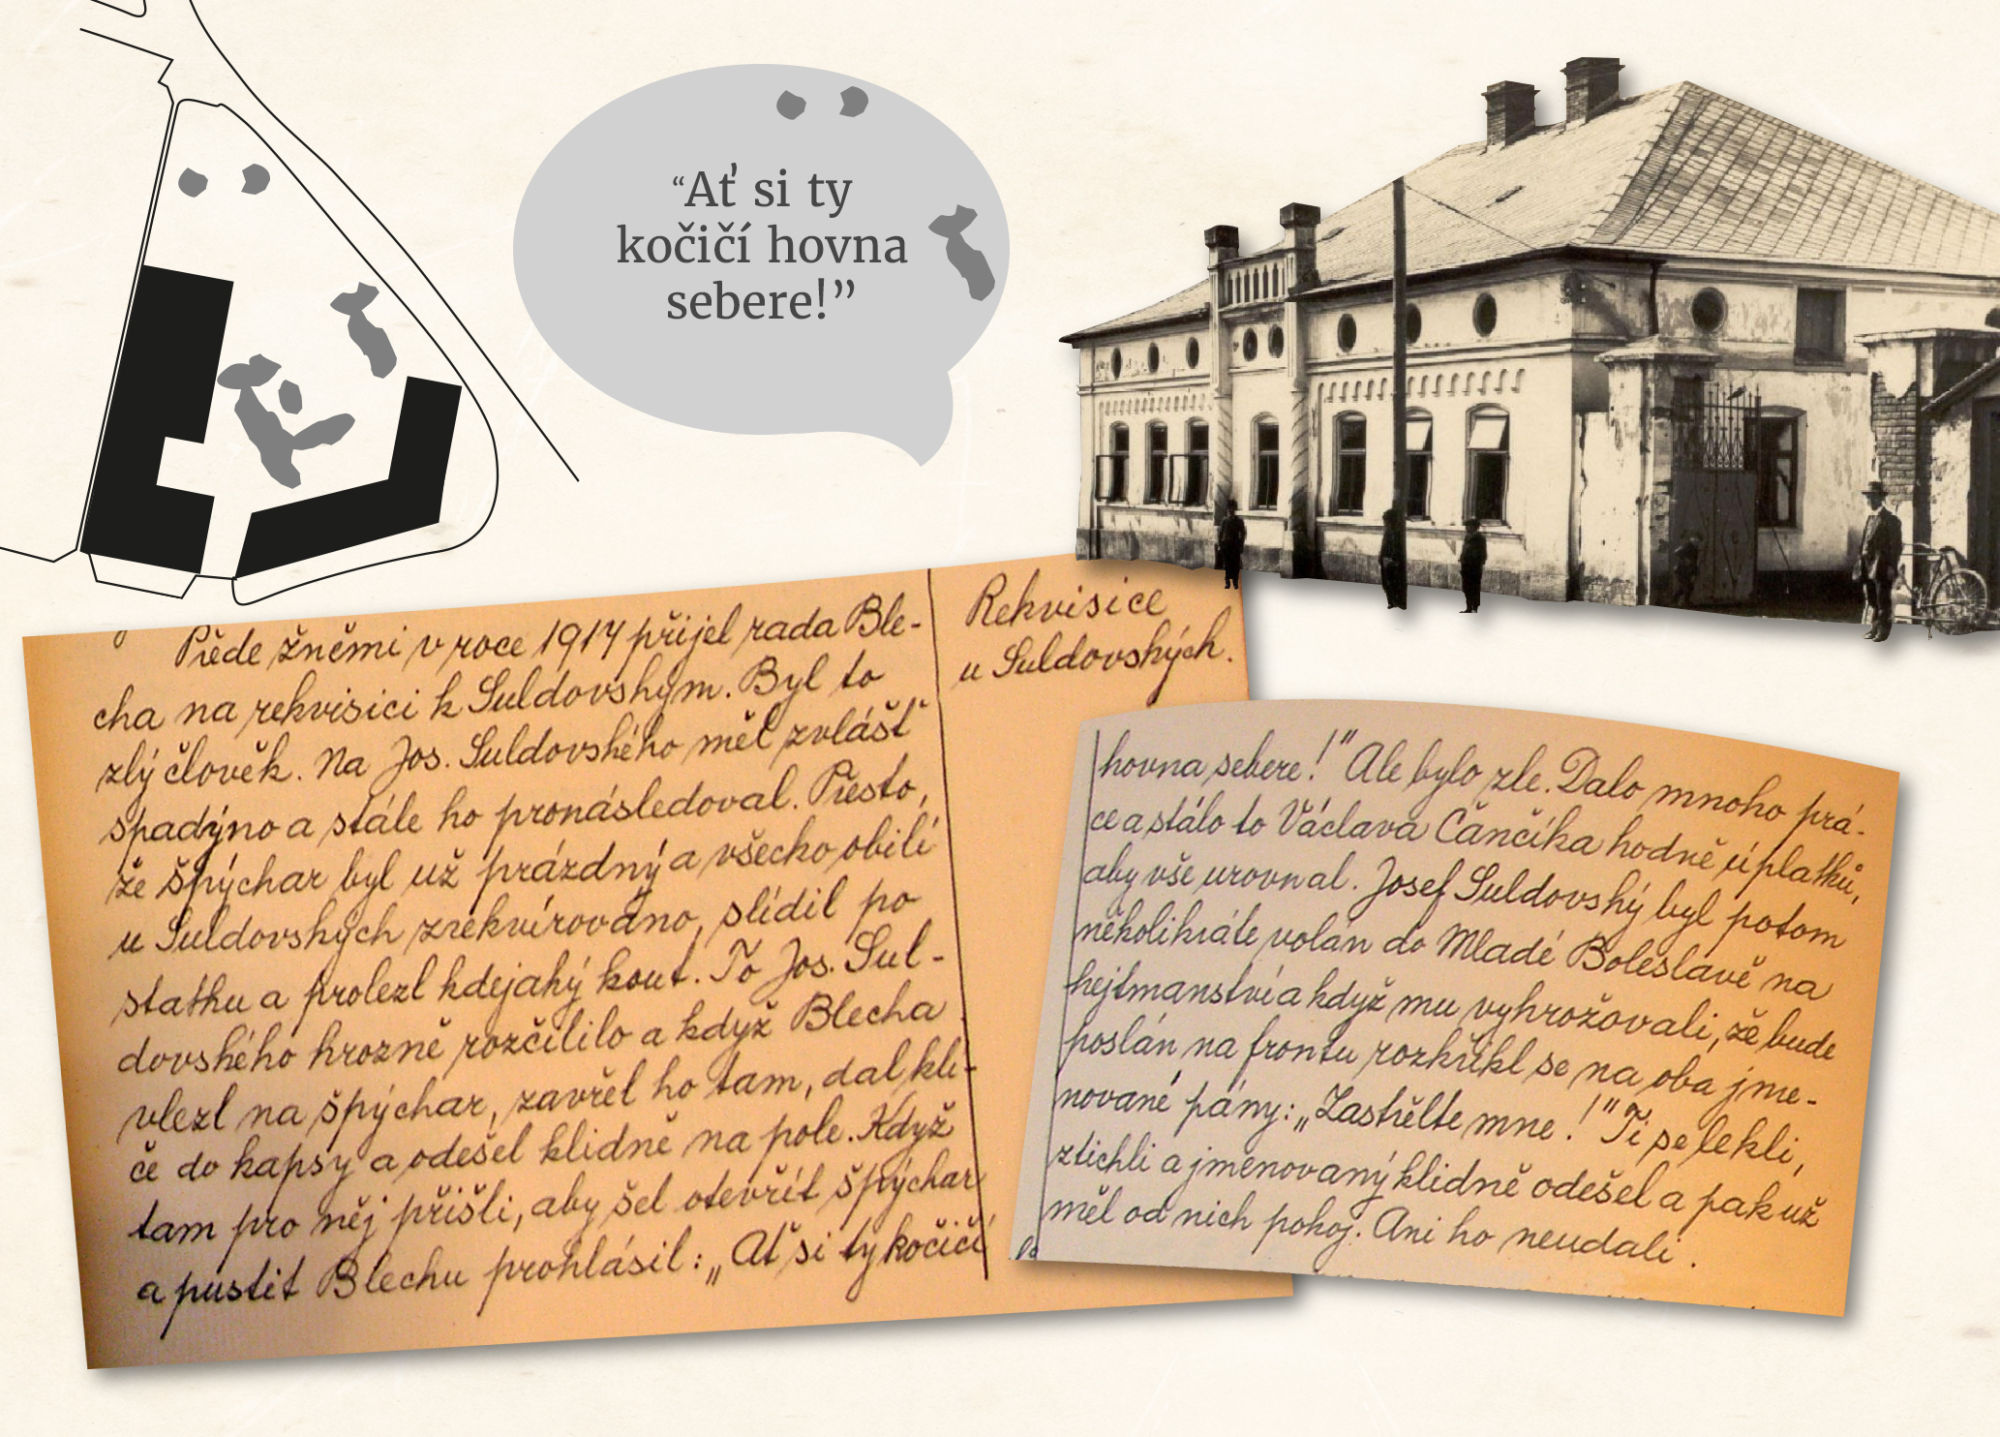 “Ať si ty
kočičí hovna
sebere!”
Přede žněmi v roce 1917 přijel rada Ble-
cha na rekvisici k Suldovským. Byl to
zlý člověk. Na Jos. Suldovského měl zvlášť
spadýno a stále ho pronásledoval. Přesto,
že špýchar byl už prázdný a všecko obilí
u Suldovských zrekvírováno, slídil po
statku a prolezl kdejaký kout. To Jos. Sul-
dovského hrozně rozčílilo a když Blecha
vlezl na špýchar, zavřel ho tam, dal klí-
če do kapsy a odešel klidně na pole. Když
tam pro něj přišli, aby šel otevřít špýchar
a pustit Blechu prohlásil: „Ať si ty kočičí
Rekvisice
u Suldovských.
hovna sebere!" Ale bylo zle. Dalo mnoho prá-
ce a stálo to Václava Čančíka hodně úplatků,
aby vše urovnal. Josef Suldovský byl potom
několikráte volán do Mladé Boleslavě na
hejtmanství a když mu vyhrožovali, že bude
poslán na frontu rozkřikl se na oba jme-
nované pány: „Zastřelte mne!" Ti se lekli,
ztichli a jmenovaný klidně odešel a pak už
měl od nich pokoj. Ani ho neudali.